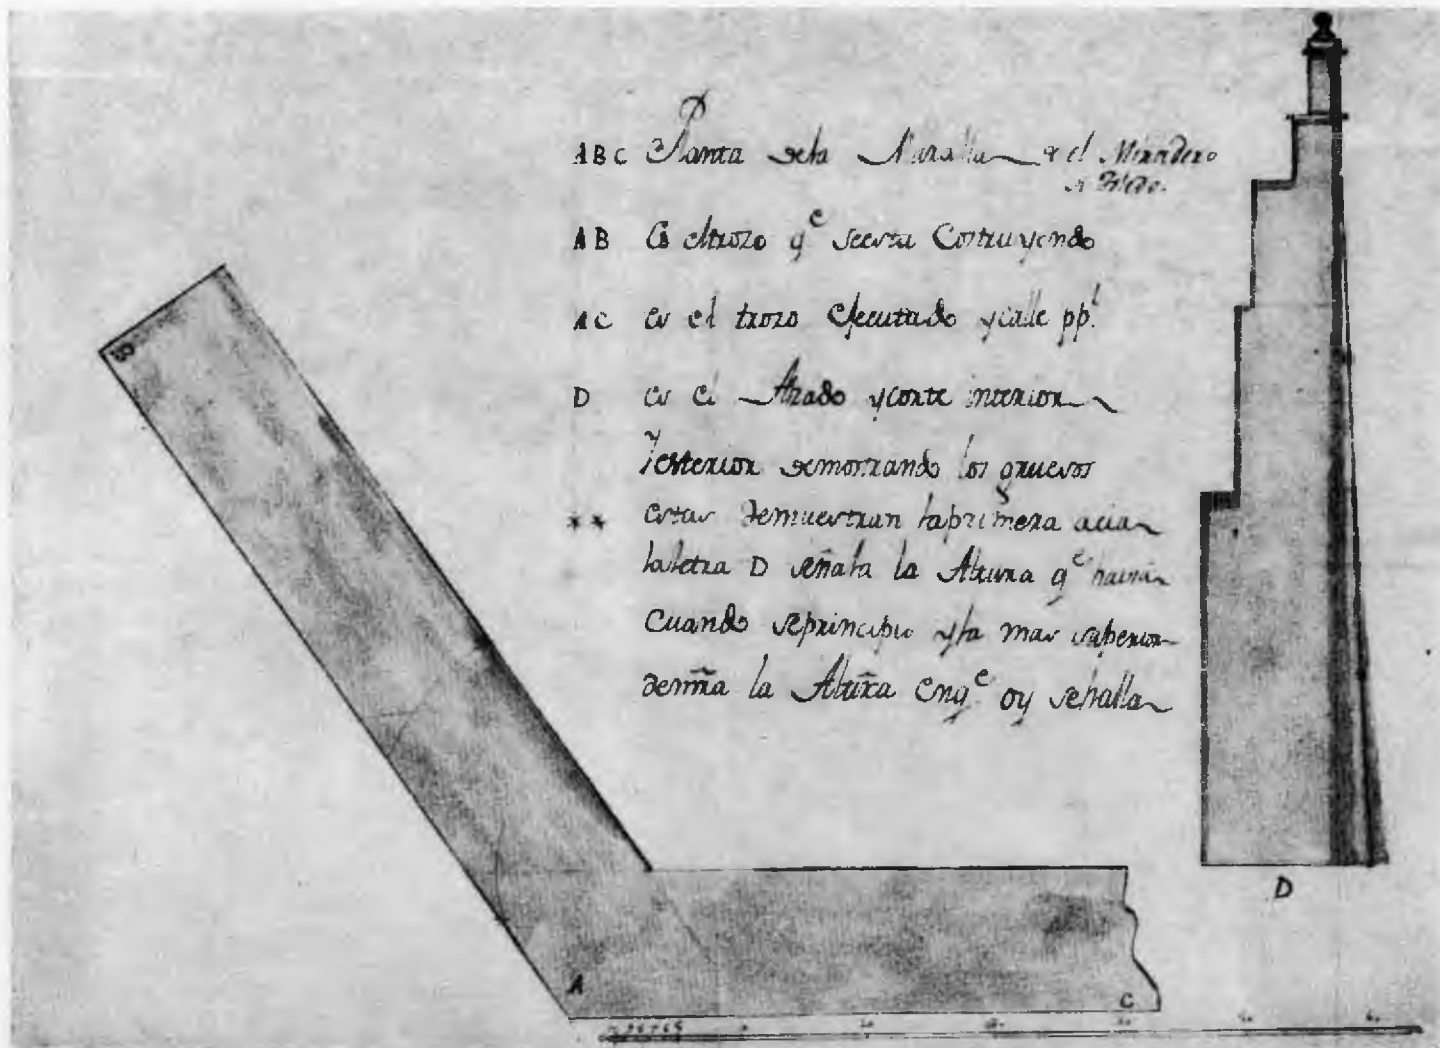 ABC Planta dela Muralla d el Miradero
d Toledo.
AB Es eltrozo q^e seesta Costruyendo
AC es el trozo Efecutado ycalle pp^l.
D es el Alzado ycorte interior
Yesterior demostrando los gruesos
** estas demuestran laprimera acia
laletra D señala la Altura q^e havia
Cuando seprincipio yla mas superior
demña la Altura Enq^e oy sehalla
B
A
C
D